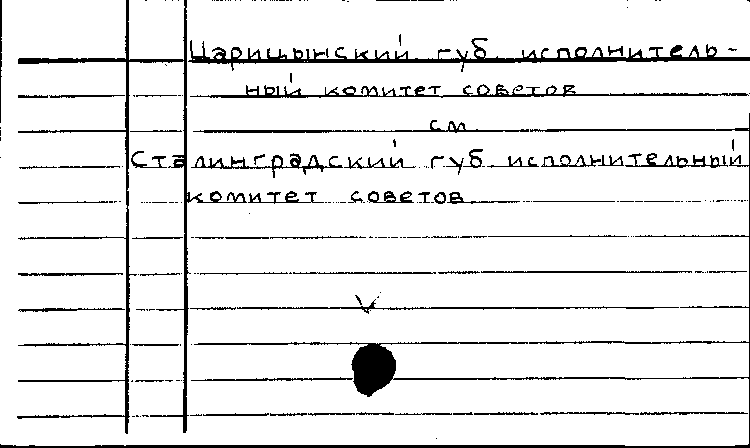 Царицынский губ. исполнитель-
ный комитет советов
см.
Сталинградский губ. исполнительный
комитет советов.